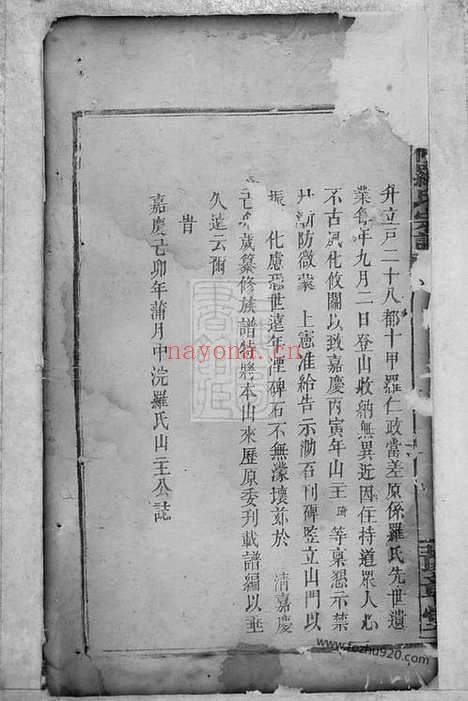 升立戸二十八都十甲羅仁政當差原係羅氏先世遺
業每年九月二日登山收納無異近因住持道眾人心
不古風化攸關以致嘉慶丙寅年山主 等稟懇示禁
杜漸防微蒙 上憲准給告示泐石刊碑竪立山門以
振 化慮恐世遠年湮碑石不無濛壞茲於 清嘉慶
己 歲纂修族譜特將本山來歷原委刋載譜編以垂
久遠云爾
旹
嘉慶己卯年蒲月中浣羅氏山主公誌
羅氏宗譜
nayona.cn
www.fozhu920.com